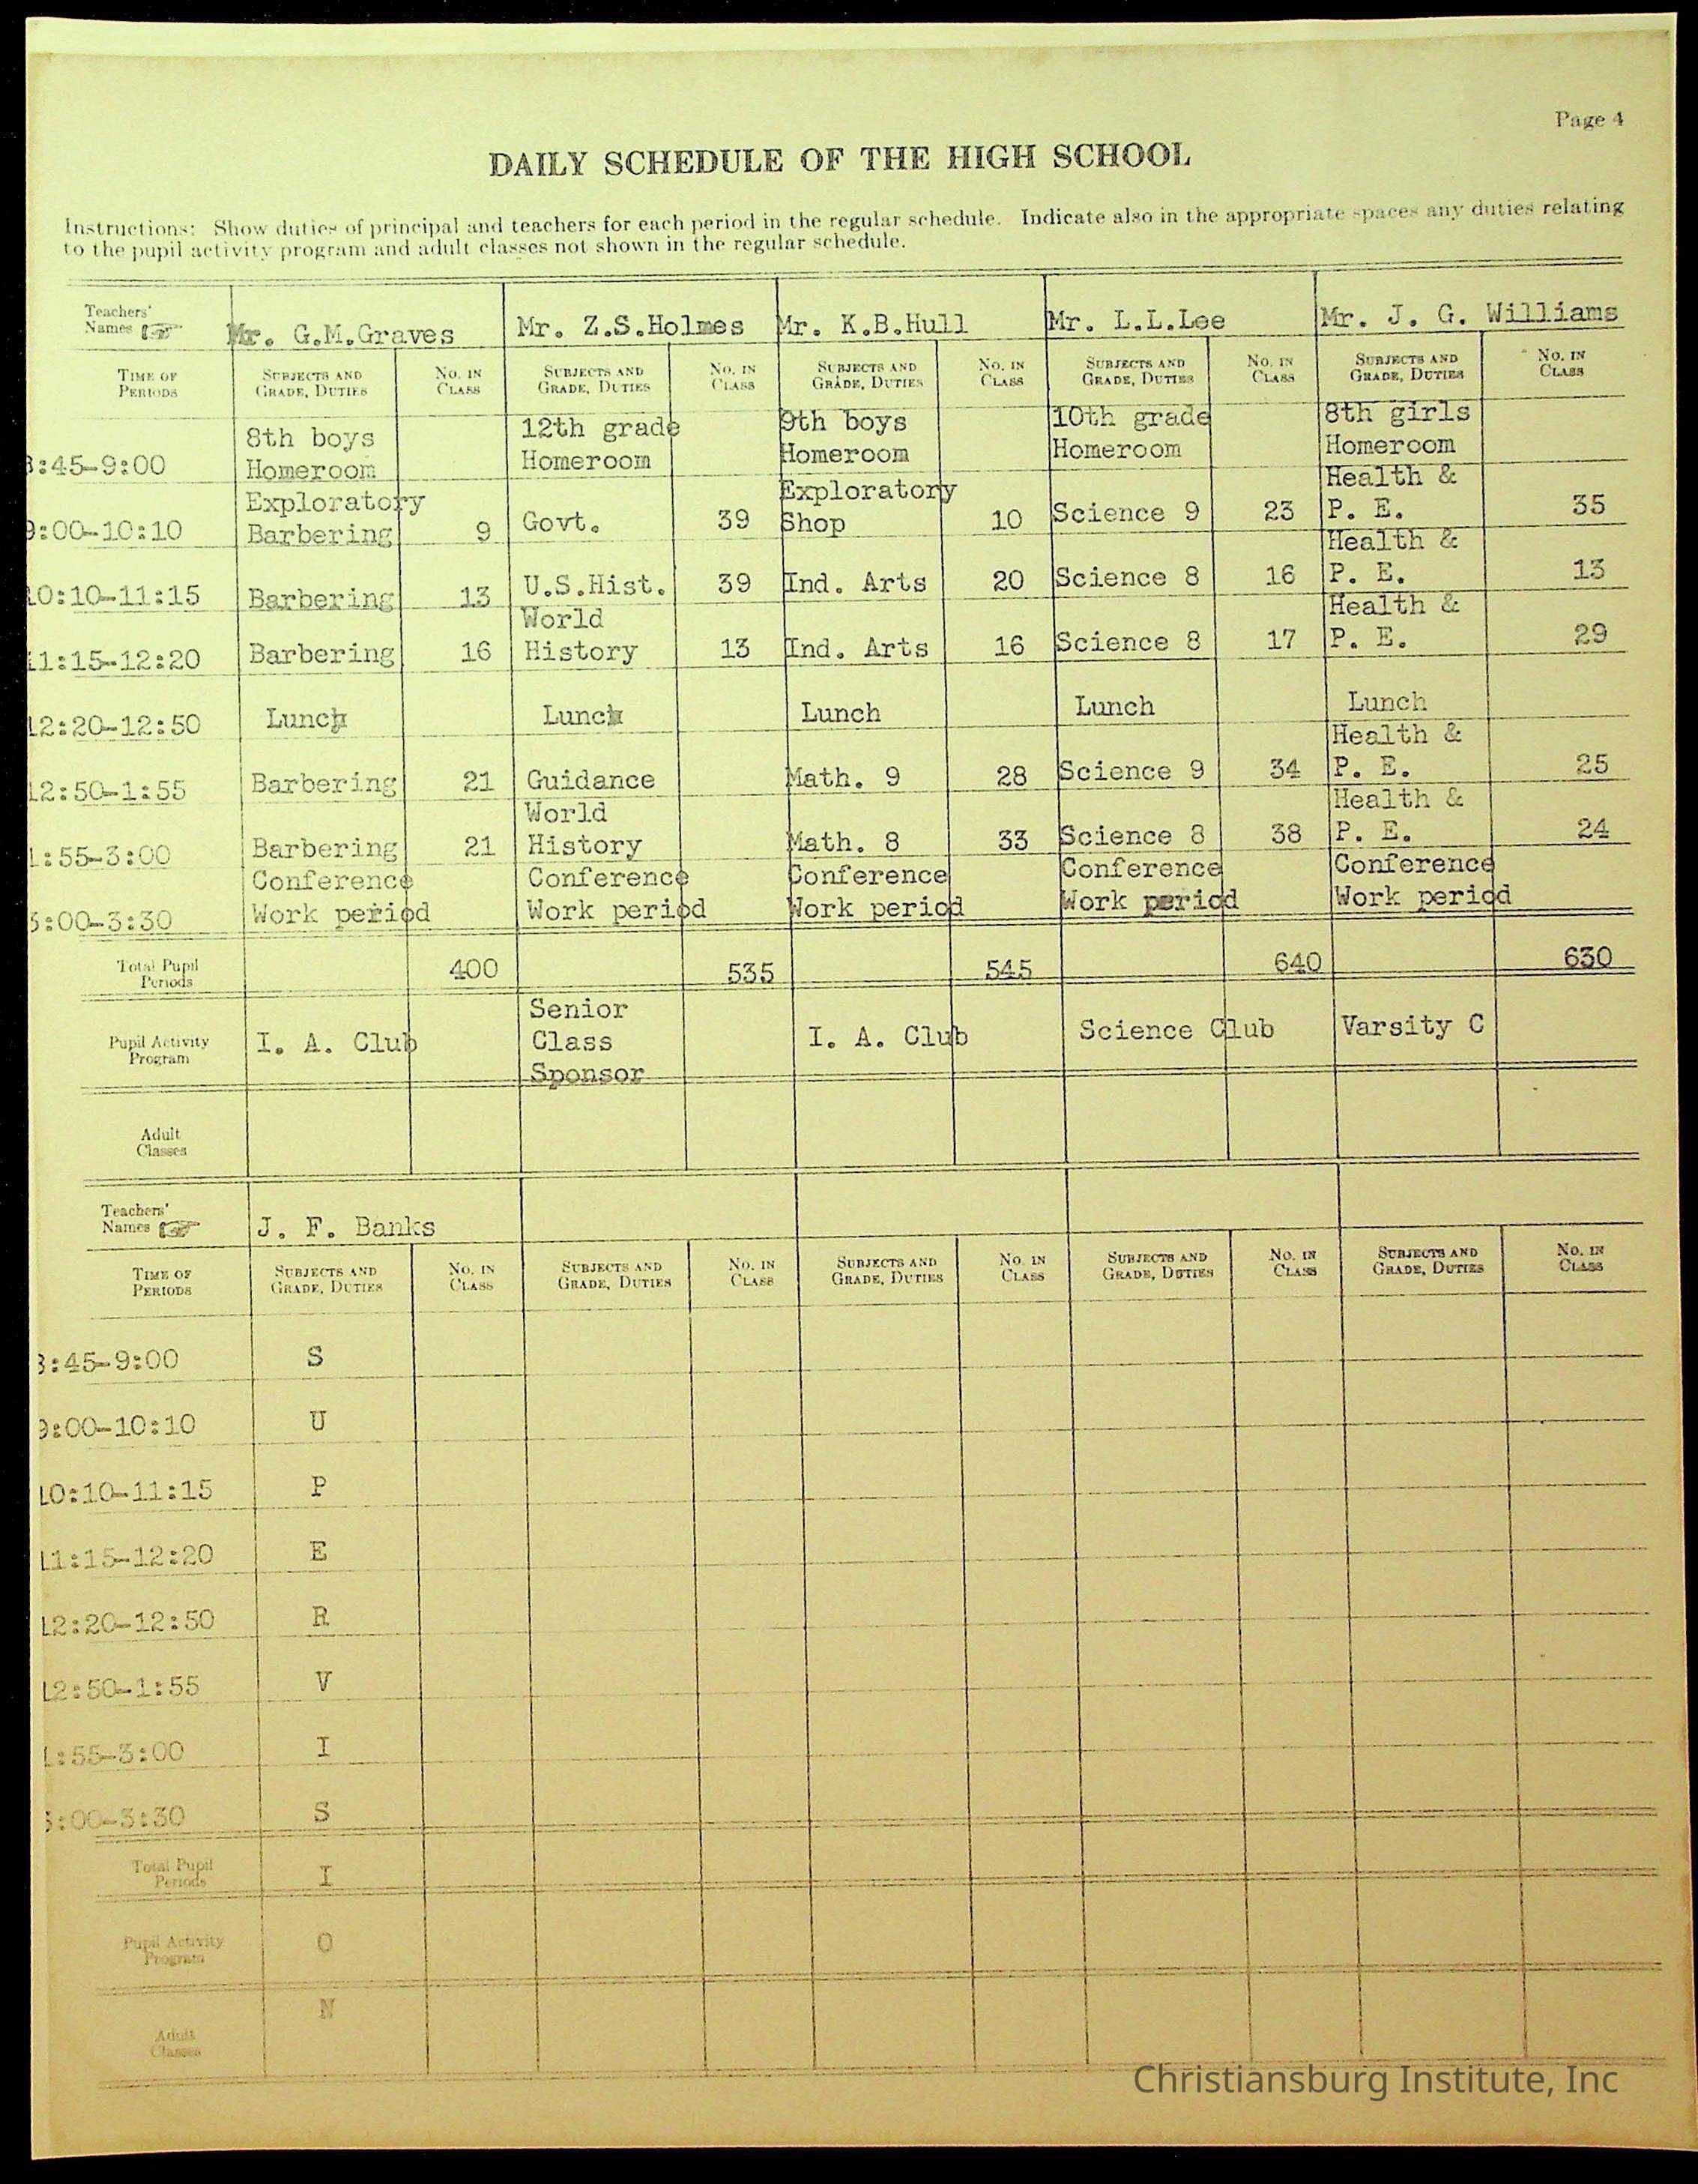 Page 4
DAILY SCHEDULE OF THE HIGH SCHOOL
Instructions: Show duties of principal and teachers for each period in the regular schedule. Indicate also in the appropriate spaces any duties relating
to the pupil activity program and adult classes not shown in the regular schedule.
Teachers' Names Mr. G.M.Graves Mr. Z.S.Holmes Mr. K.B.Hull Mr. L.L.Lee Mr. J. G. Williams
TIME OF SUBJECTS AND NO. IN SUBJECTS AND NO. IN SUBJECTS AND NO. IN SUBJECTS AND NO. IN SUBJECTS AND NO. IN
PERIODS GRADE, DUTIES CLASS GRADE, DUTIES CLASS GRADE, DUTIES CLASS GRADE, DUTIES CLASS GRADE, DUTIES CLASS
8th boys 12th grade 9th boys 10th grade 8th girls
8:45-9:00 Homeroom Homeroom Homeroom Homeroom Homeroom
Exploratory Exploratory Health &
9:00-10:10 Barbering 9 Govt. 39 Shop 10 Science 9 23 P. E. 35
Health &
10:10-11:15 Barbering 13 U.S.Hist. 39 Ind. Arts 20 Science 8 16 P. E. 13
World Health &
11:15-12:20 Barbering 16 History 13 Ind. Arts 16 Science 8 17 P. E. 29
12:20-12:50 Lunch Lunch Lunch Lunch Lunch
Health &
12:50-1:55 Barbering 21 Guidance Math. 9 28 Science 9 34 P. E. 25
World Health &
1:55-3:00 Barbering 21 History Math. 8 33 Science 8 38 P. E. 24
Conference Conference Conference Conference Conference
3:00-3:30 Work period Work period Work period Work period Work period
Total Pupil
Periods 400 535 545 640 630
Senior
Pupil Activity I. A. Club Class I. A. Club Science Club Varsity C
Program Sponsor
Adult
Classes
Teachers'
Names J. F. Banks
TIME OF SUBJECTS AND NO. IN SUBJECTS AND NO. IN SUBJECTS AND NO. IN SUBJECTS AND NO. IN SUBJECTS AND NO. IN
PERIODS GRADE, DUTIES CLASS GRADE, DUTIES CLASS GRADE, DUTIES CLASS GRADE, DUTIES CLASS GRADE, DUTIES CLASS
8:45-9:00 S
9:00-10:10 U
10:10-11:15 P
11:15-12:20 E
12:20-12:50 R
12:50-1:55 V
1:55-3:00 I
3:00-3:30 S
Total Pupil
Periods I
Pupil Activity
Program O
N
Adult
Classes
Christiansburg Institute, Inc